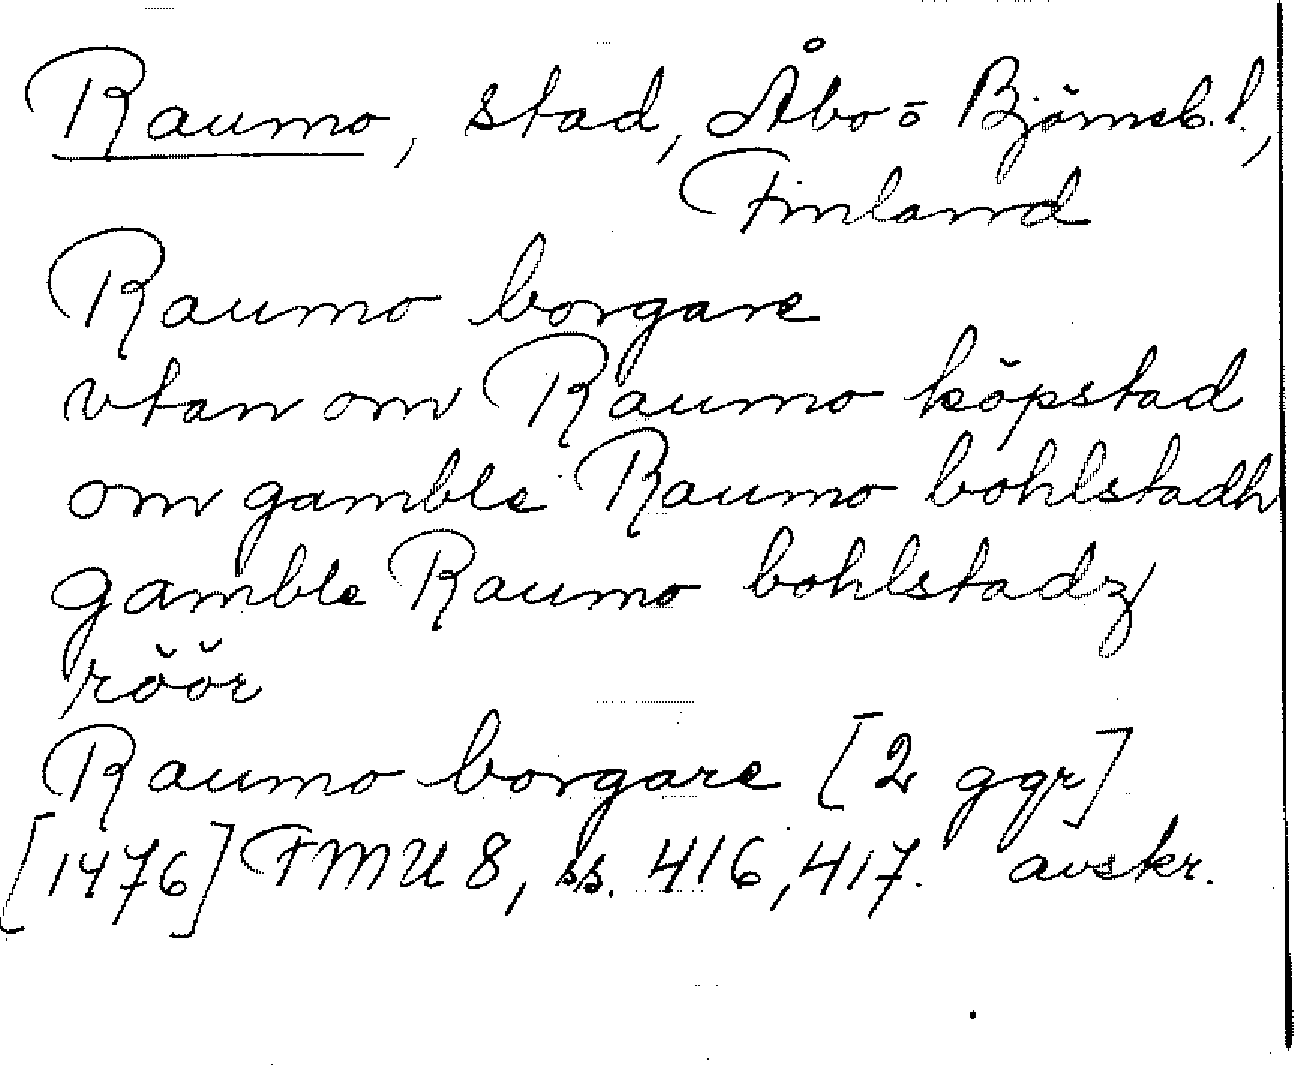 Raumo, stad, Åbo= Björneb. l.,
Finland
Raumo borgare
vtan om Raumo köpstad
om gamble Raumo bohlstadh
gamble Raumo bohlstadz
röör
Raumo borgare [2 ggr]
[1476] FMU 8, ss. 416, 417. avskr.